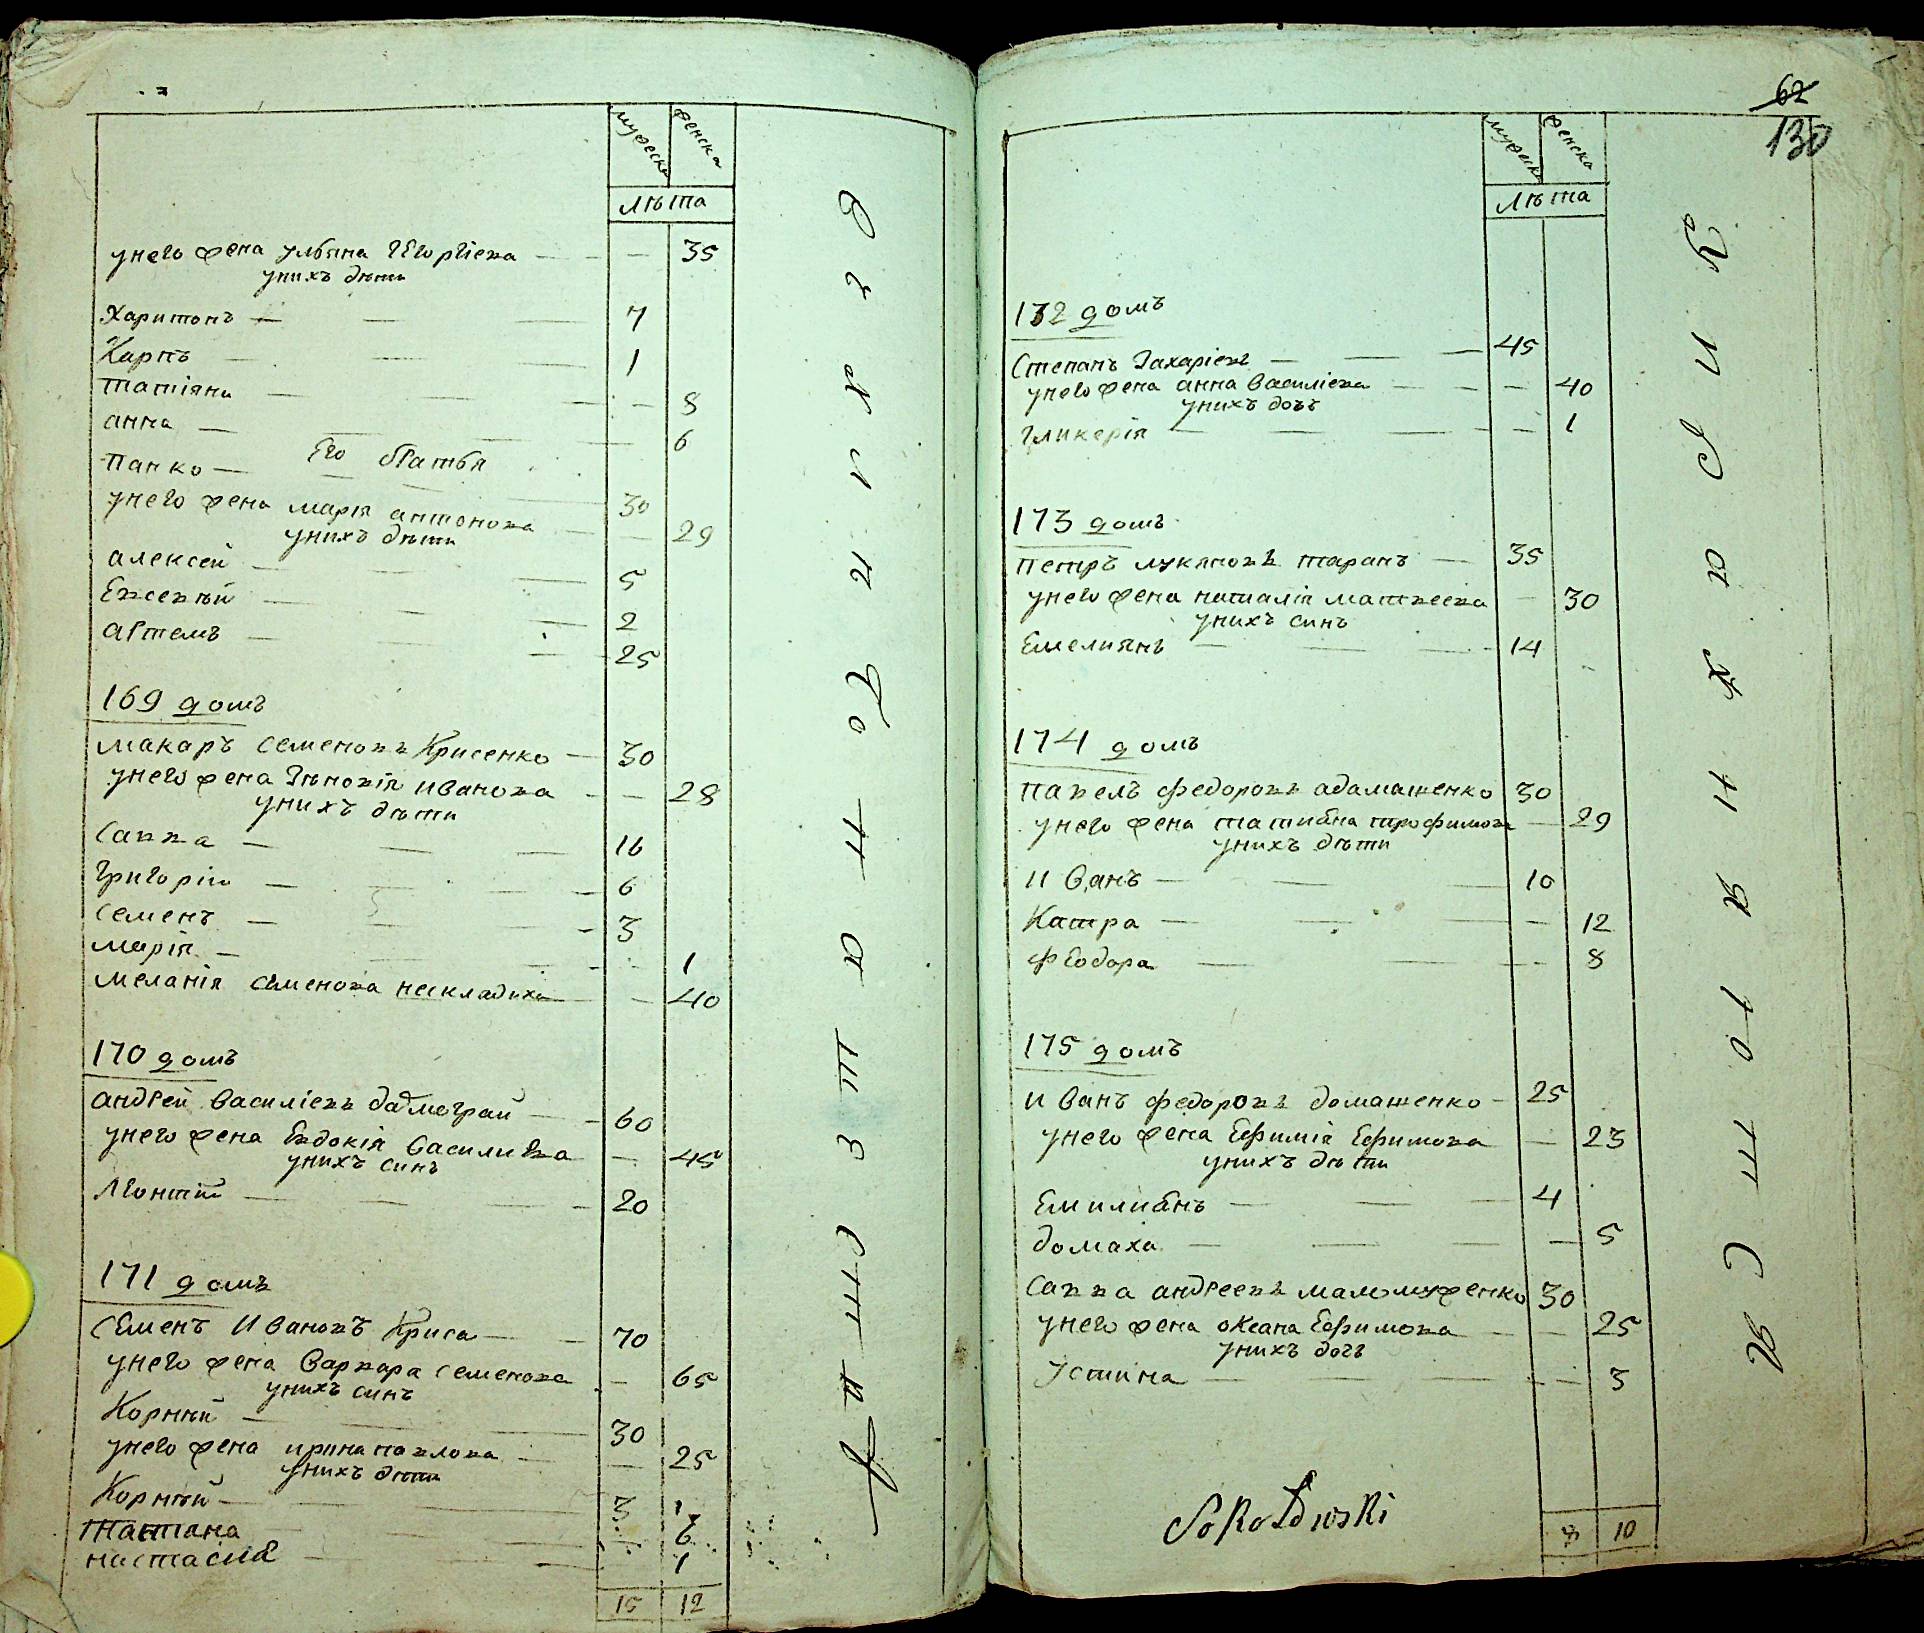 мужеска женска
лѣта
унего жена улбяна Георгіева — 35
унихъ дѣти
Харитонъ — 7
Карпъ — 1
татіяна — 8
анна — 6
Его братья
панко — 30
унего жена марія антонова — 29
унихъ дѣти
алексей — 5
Евсевѣй — 2
артемъ — 25
169 домъ
макаръ семеновъ Крисенко — 30
унего жена Зѣновія иванова — 28
унихъ дѣти
савва — 16
Григорій — 6
семенъ — 3
марія — 1
меланія семенова нескладиха — 40
170 домъ
андрей василіевъ далмограй — 60
унего жена Евдокія василиева — 45
унихъ синъ
Леонтій — 20
171 домъ
семенъ Ивановъ Криса — 70
унего жена варвара семенова — 65
унихъ синъ
Корнѣй — 30
унего жена ирина павлова — 25
унихъ дѣти
Корнѣй — 3 1
татияна — 6
настасия — 1
15 12
62
130
мужеска женска
лѣта
172 домъ
Степанъ Захаріевъ — 45
унего жена анна василіева — 40
унихъ дочъ
Гликерія — 1
173 домъ
петръ лукяновъ таранъ — 35
унего жена наталія матвеева — 30
унихъ синъ
Емелиянъ — 14
174 домъ
павелъ федоровъ адамашенко 30
унего жена татияна трофимова — 29
унихъ дѣти
Иванъ — 10
Катра — 12
Феодора — 8
175 домъ
иванъ федоровъ домашенко — 25
унего жена Ефимія Ефимова — 23
унихъ дѣти
Емилиянъ — 4
домаха — 5
савва андреевъ маломуженко 30
унего жена оксана Ефимова — 25
унихъ дочъ
Устина — 3
Sokołowski
8 10